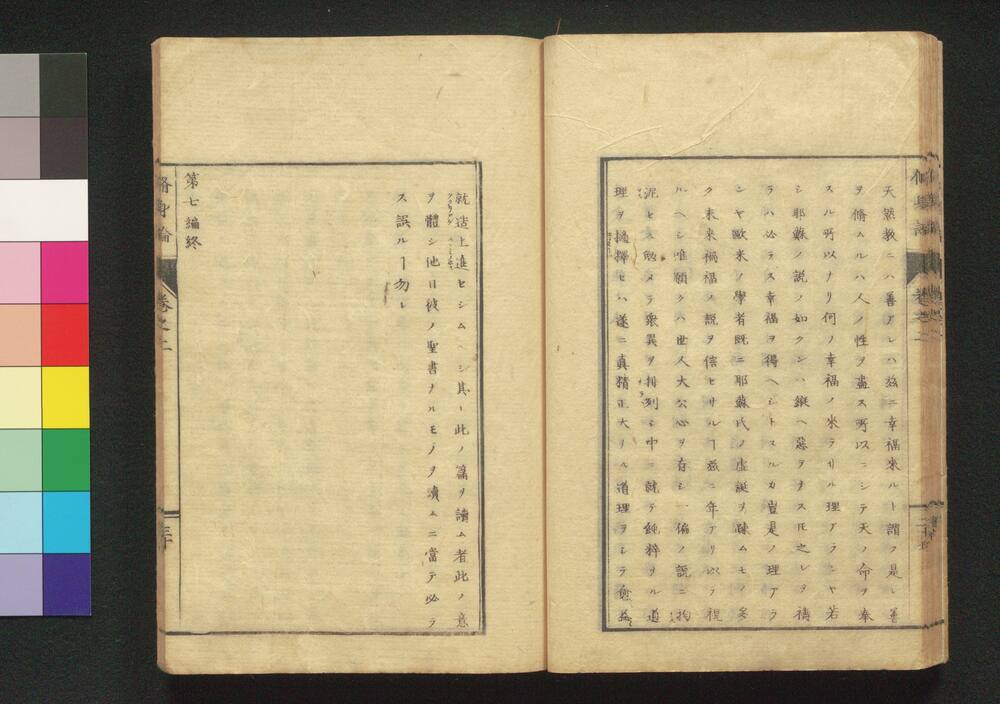 天然教ニハ善アレハ茲ニ幸福來ルト謂フ是レ善
ヲ脩ムルハ人ノ性ヲ盡ス所以ニシテ天ノ命ヲ奉
スル所以ナリ何ノ幸福ノ來ラサル理アランヤ若
シ耶蘇ノ説ノ如クンハ縱ヘ惡ヲナスモ之レヲ禱
ラハ必ラス幸福ヲ得ヘシトスルカ豈是ノ理アラ
ンヤ歐米ノ學者既ニ耶蘇氏ノ虚誕ヲ疎ムモノ多
ク未來禍福ノ説ヲ信セサルヿ茲ニ年アリ以テ視
ルヘシ唯願クハ世人大公心ヲ存シ一偏ノ説ニ拘
泥セス勉メテ衆異ヲ相列シ中ニ就テ純粹ナル道
理ヲ撰擇セハ遂ニ眞精正大ナル道理ヲシテ愈益
就造上進セシムヘシ其レ此ノ篇ヲ讀ム者此ノ意
ヲ體シ他日彼ノ聖書ナルモノヲ讀ムニ當テ必ラ
ス誤ルヿ勿レ
第七編終
脩身論
卷之二